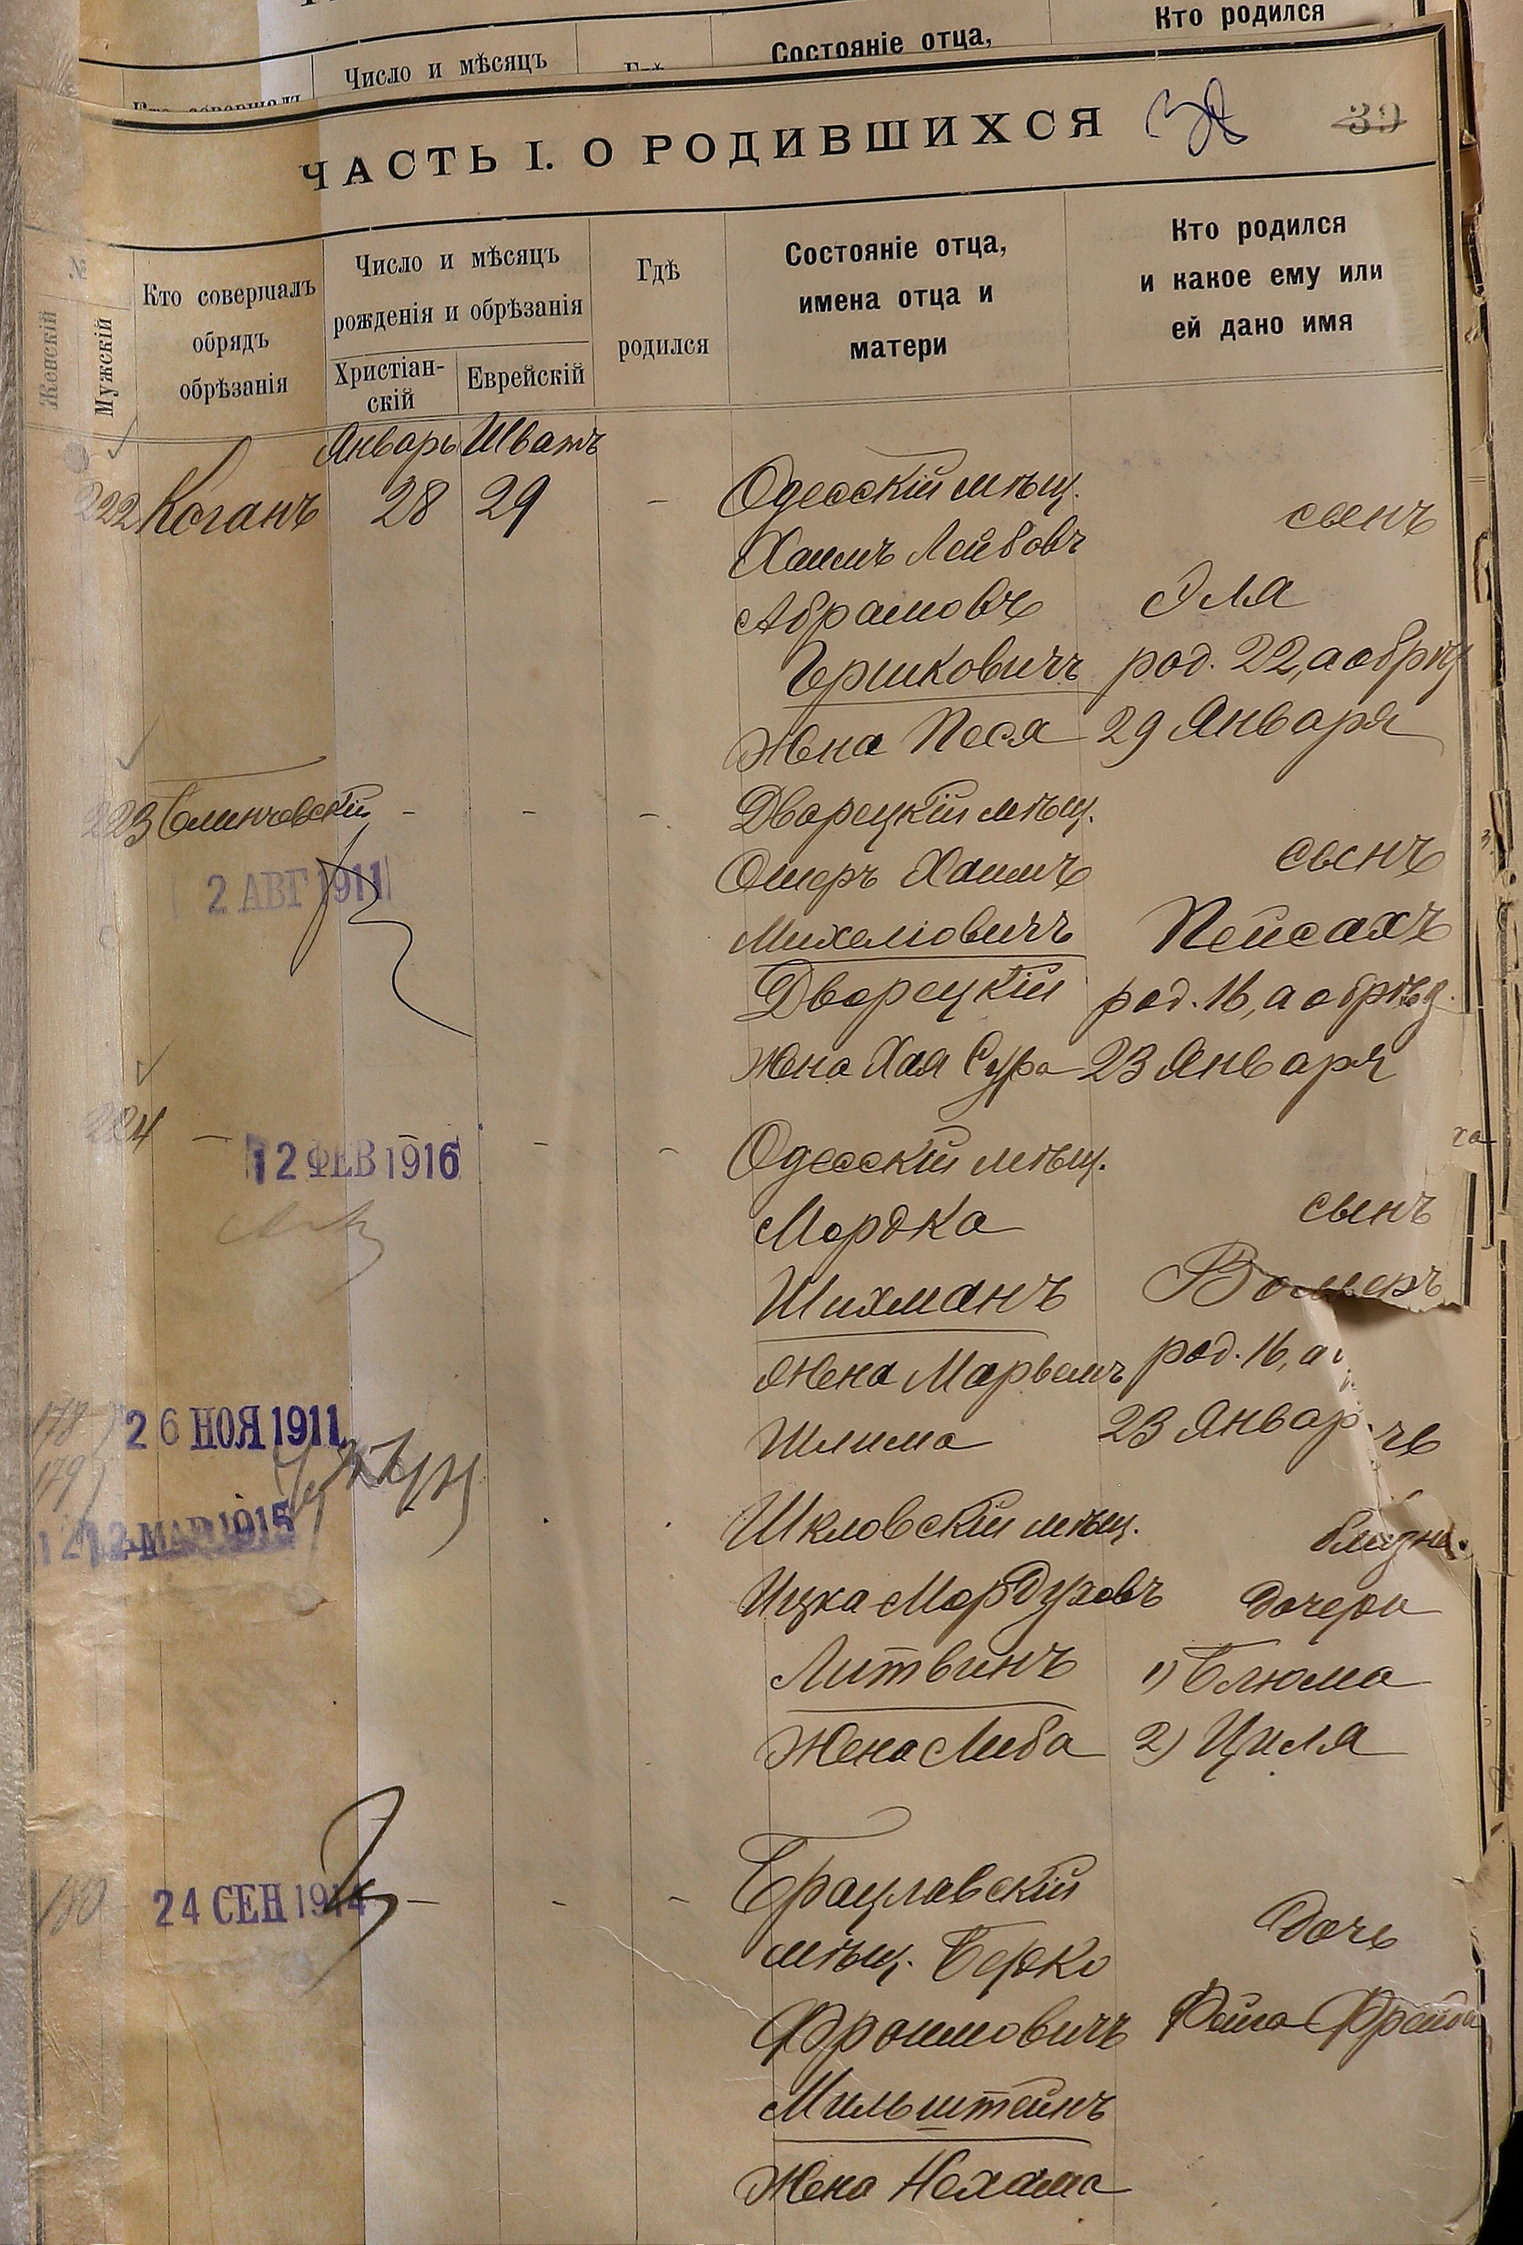 Кто родился
Состояніе отца,
Число и мѣсяцъ
ЧАСТЬ I. О РОДИВШИХСЯ
39
№
Женскій
Мужскій
Кто совершалъ
обрядъ
обрѣзанія
Число и мѣсяцъ
рожденія и обрѣзанія
Христіан-
скій
Еврейскій
Гдѣ
родился
Состояніе отца,
имена отца и
матери
Кто родился
и какое ему или
ей дано имя
Январь Шватъ
222 Коганъ 28 29 -
Одесскій мѣщ.
Хаимъ Лейбовъ
Абрамовъ
Гершковичъ
Жена Песя
сынъ
Эля
род. 22, а обрѣз
29 Января
223
- - -
2 АВГ 1911
Дворецкій мѣщ.
Ошеръ Хаимъ
Михелiовичъ
Дворецкій
Жена Хая Сура
сынъ
Пейсахъ
род. 16, а обрѣз.
23 Января
224 - - - -
12 ФЕВ 1916
Одесскій мѣщ.
Мордка
Шихманъ
Жена Марьемъ
Шлима
сынъ
род. 16, а
23 Январ
178
179
26 НОЯ 1911
12 МАР 1915
Шкловскій мѣщ.
Ицка Мордуховъ
Литвинъ
Жена Либа
близн.
дочери
1) Блюма
2) Циля
180
24 СЕН 1914
- - -
Брацлавскій
мѣщ. Берко
Фроимовичъ
Мильштейнъ
Жена Нехама
дочь
Фейга Фрейда